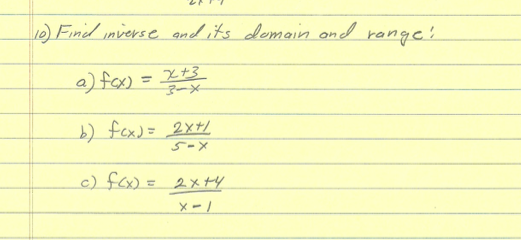 10) Find inverse and its domain and range:
a) f(x) = x+3 / 3-x
b) f(x) = 2x+1 / 5-x
c) f(x) = 2x+4 / x-1